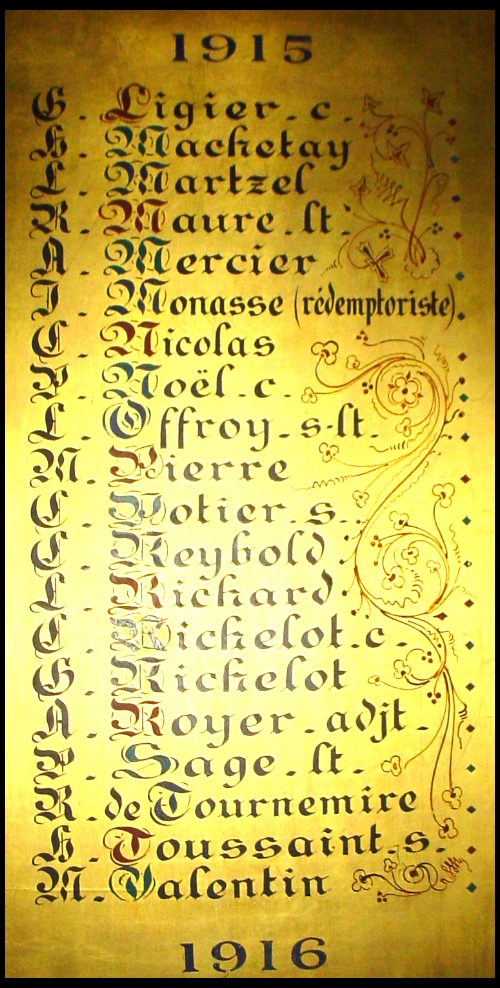 1915
G. Ligier. c.
H. Machetay
L. Martzel
R. Maure. lt.
A. Mercier
J. Monasse (rédemptoriste).
C. Nicolas
P. Noël. c.
L. Offroy. s-lt.
M. Pierre
C. Potier. s.
C. Reybold
L. Richard
C. Richelot. c.
G. Richelot
A. Royer. adjt.
P. Sage. lt.
R. de Tournemire
H. Toussaint. s.
M. Valentin
1916